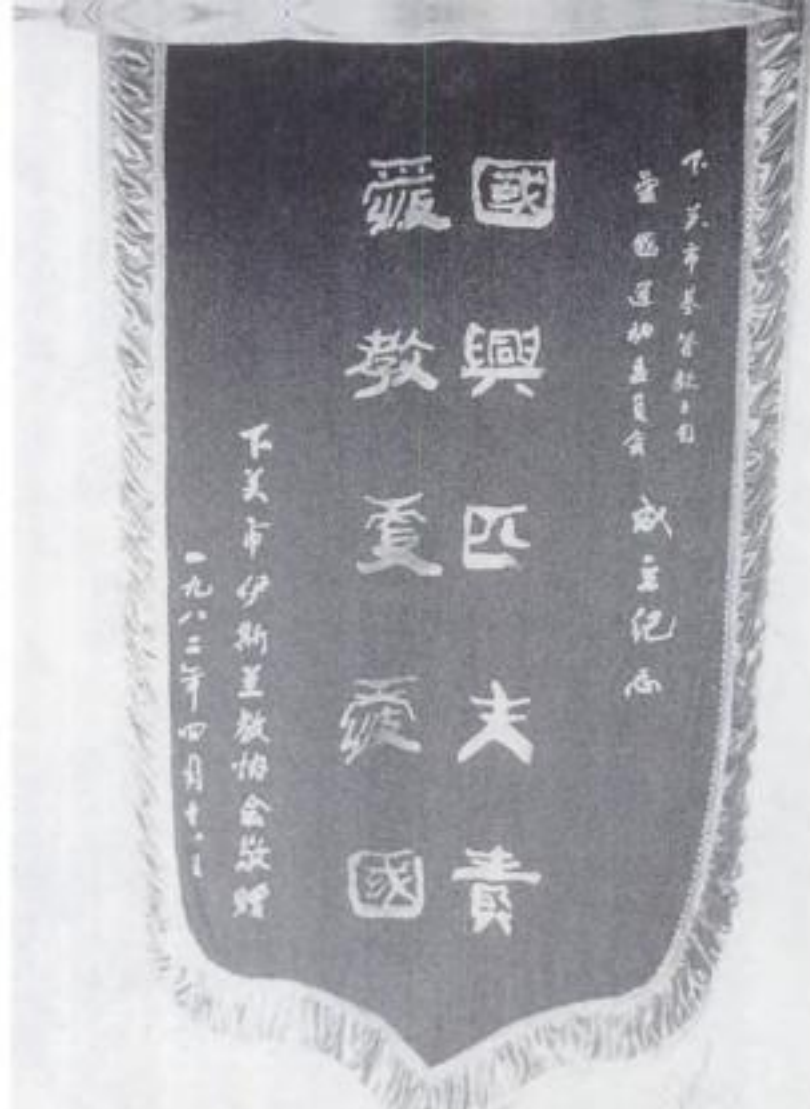 下关市基督教三自
爱国運动委员会 成立纪念
國興匹夫責
愛教更愛國
下关市伊斯兰教协会敬赠
一九八二年四月十八日